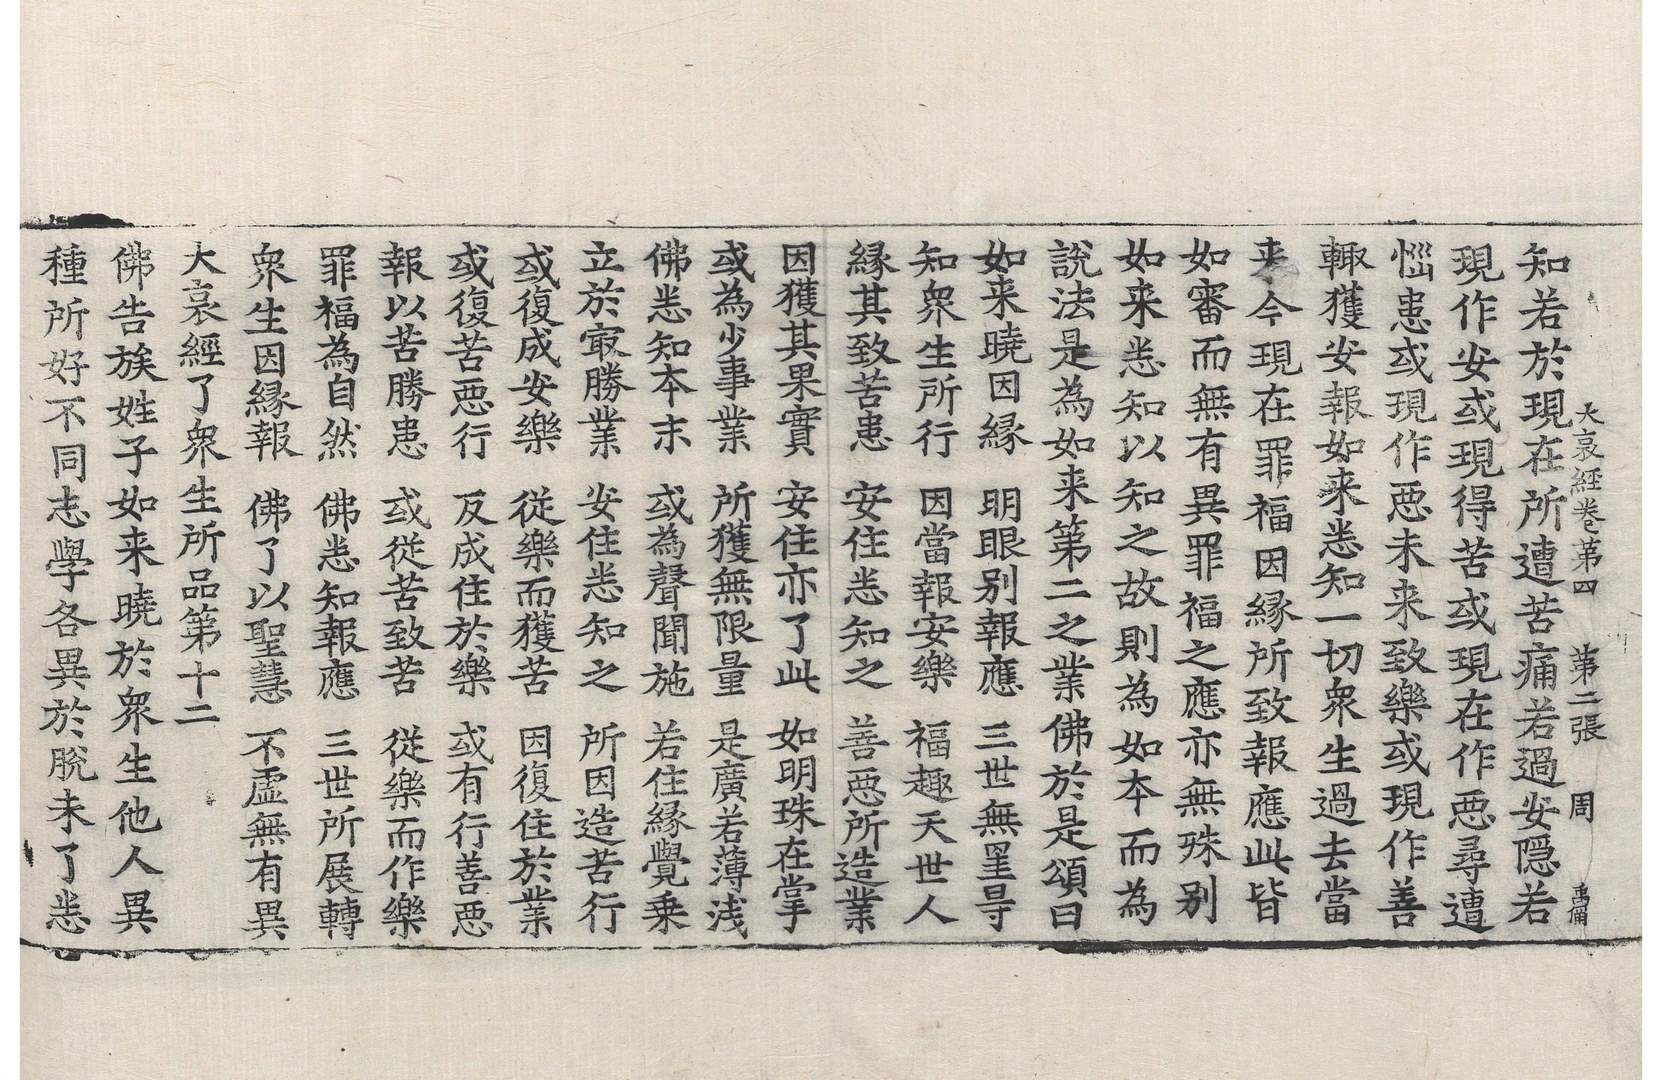 大哀経卷第四　第二張　周　禹傭
知若於現在所遭苦痛若過安隱若
現作安或現得苦或現在作惡尋遭
惱患或現作惡未来致樂或現作善
輙獲安報如来悉知一切衆生過去當
来今現在罪福因緣所致報應此皆
如審而無有異罪福之應亦無殊别
如来悉知以知之故則為如本而為
說法是為如来第二之業佛於是頌曰
如来曉因緣　明眼别報應　三世無罣㝵
知衆生所行　因當報安樂　福趣天世人
緣其致苦患　安住悉知之　善惡所造業
因獲其果實　安住亦了此　如明珠在掌
或為少事業　所獲無限量　是廣若薄淺
佛悉知本末　或為聲聞施　若住緣覺乗
立於㝡勝業　安住悉知之　所因造苦行
或復成安樂　從樂而獲苦　因復住於業
或復苦惡行　反成住於樂　或有行善惡
報以苦勝患　或從苦致苦　從樂而作樂
罪福為自然　佛悉知報應　三世所展轉
衆生因緣報　佛了以聖慧　不虛無有異
大哀經了衆生所品第十二
佛告族姓子如来曉於衆生他人異
種所好不同志學各異於脫未了悉